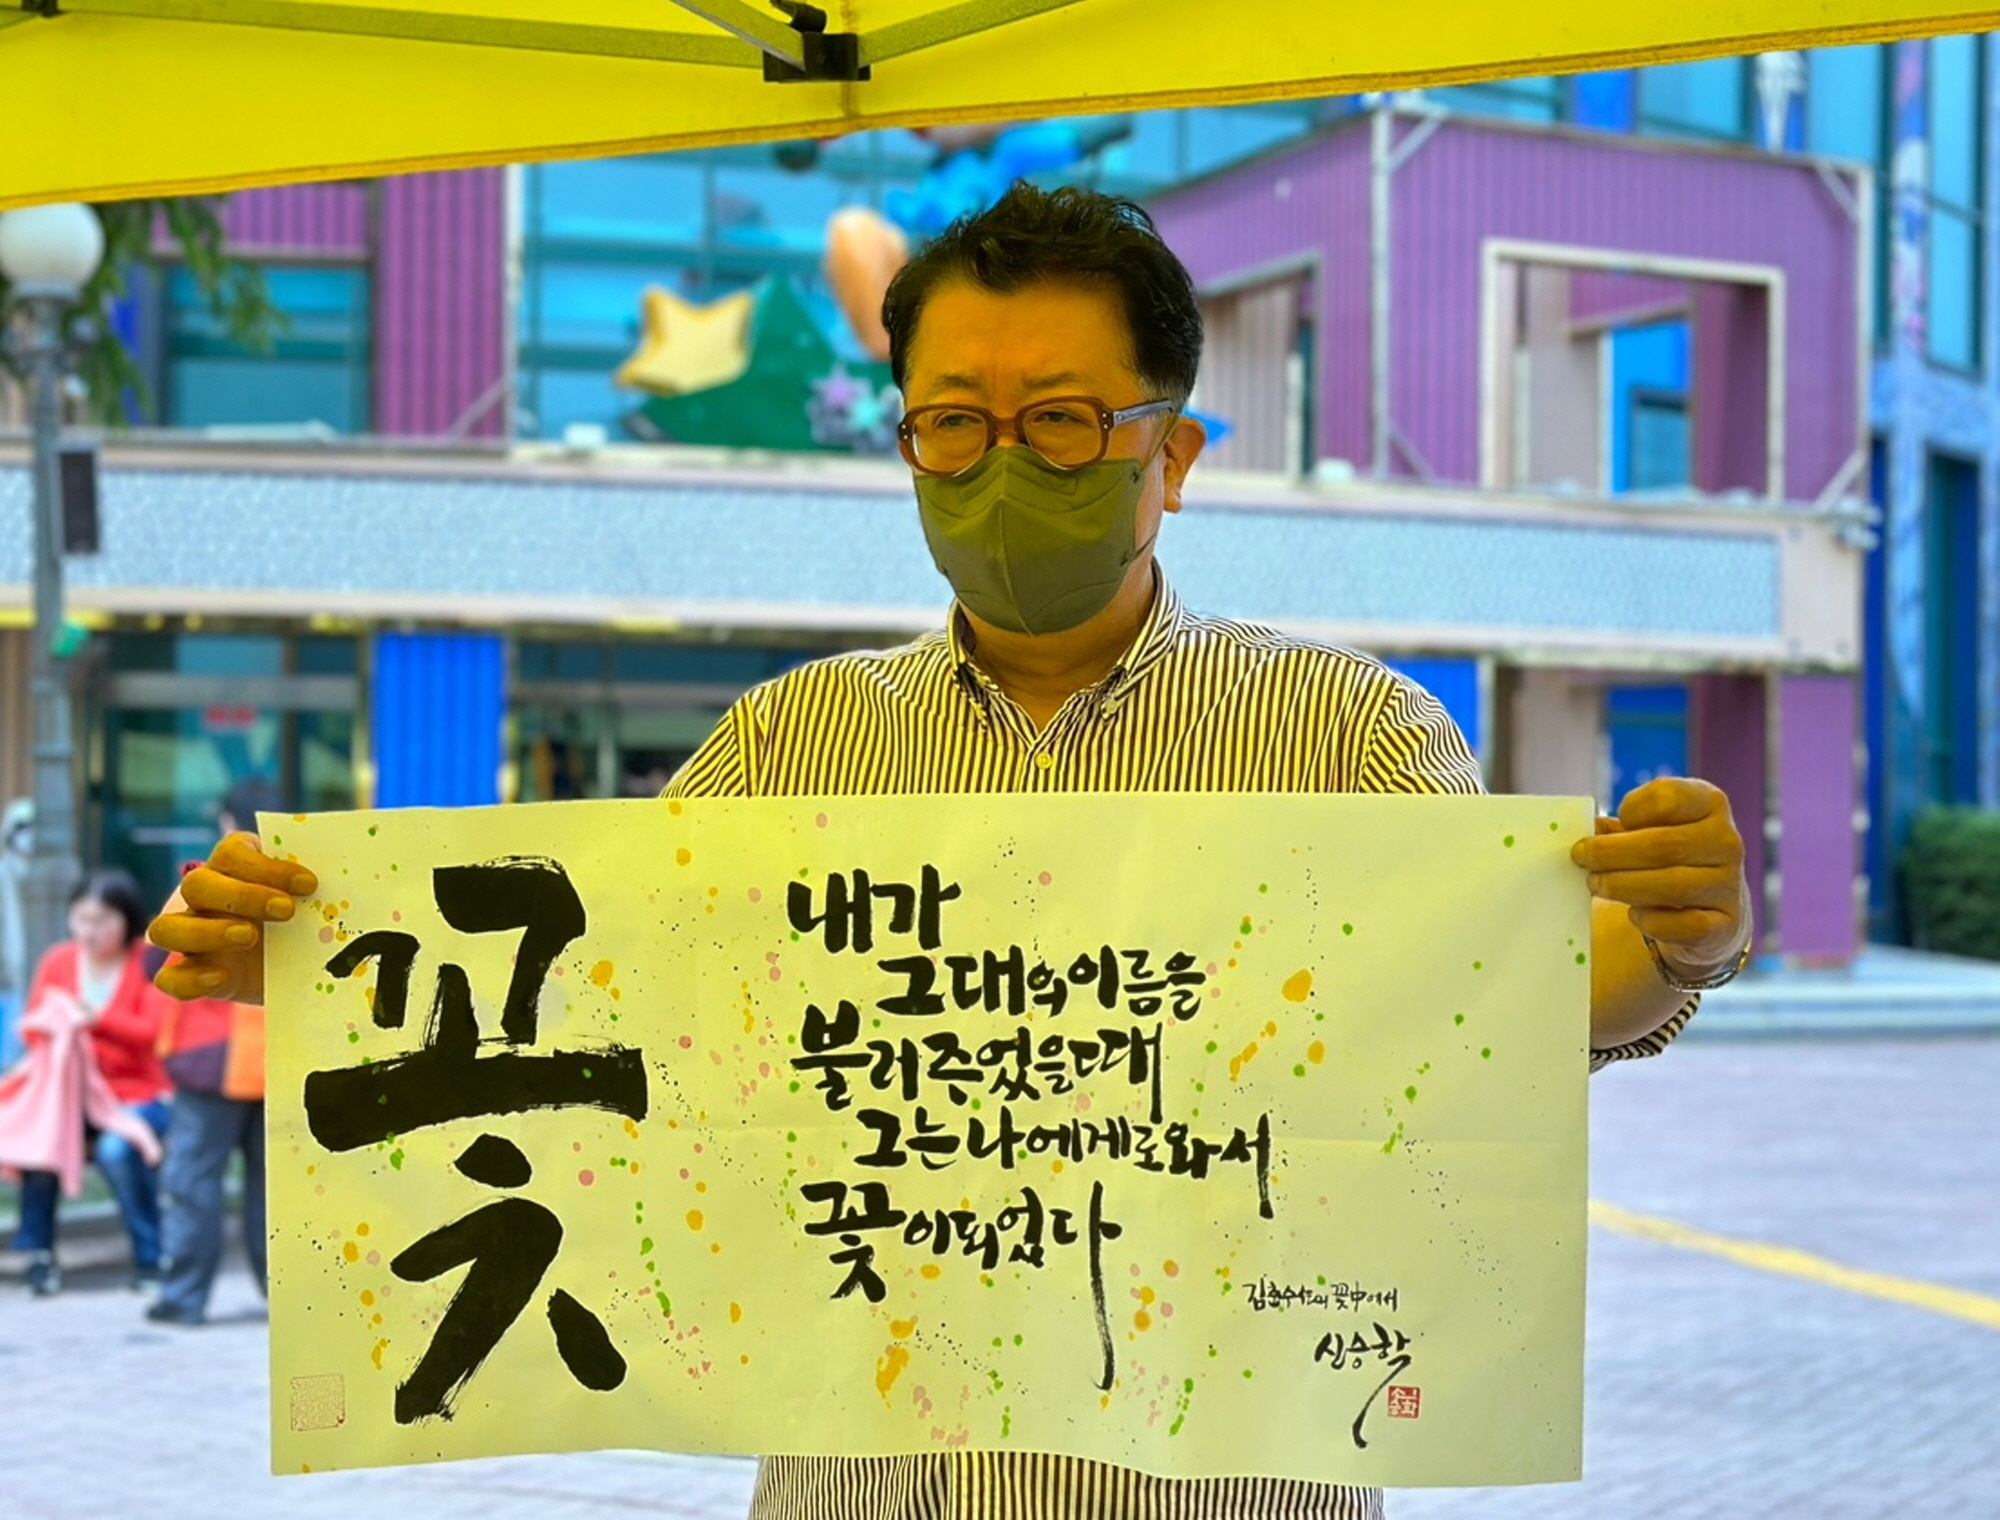 꽃
내가
그대의 이름을
불러주었을 때
그는 나에게로 와서
꽃이 되었다
김춘수 시의 꽃 中에서
신승학